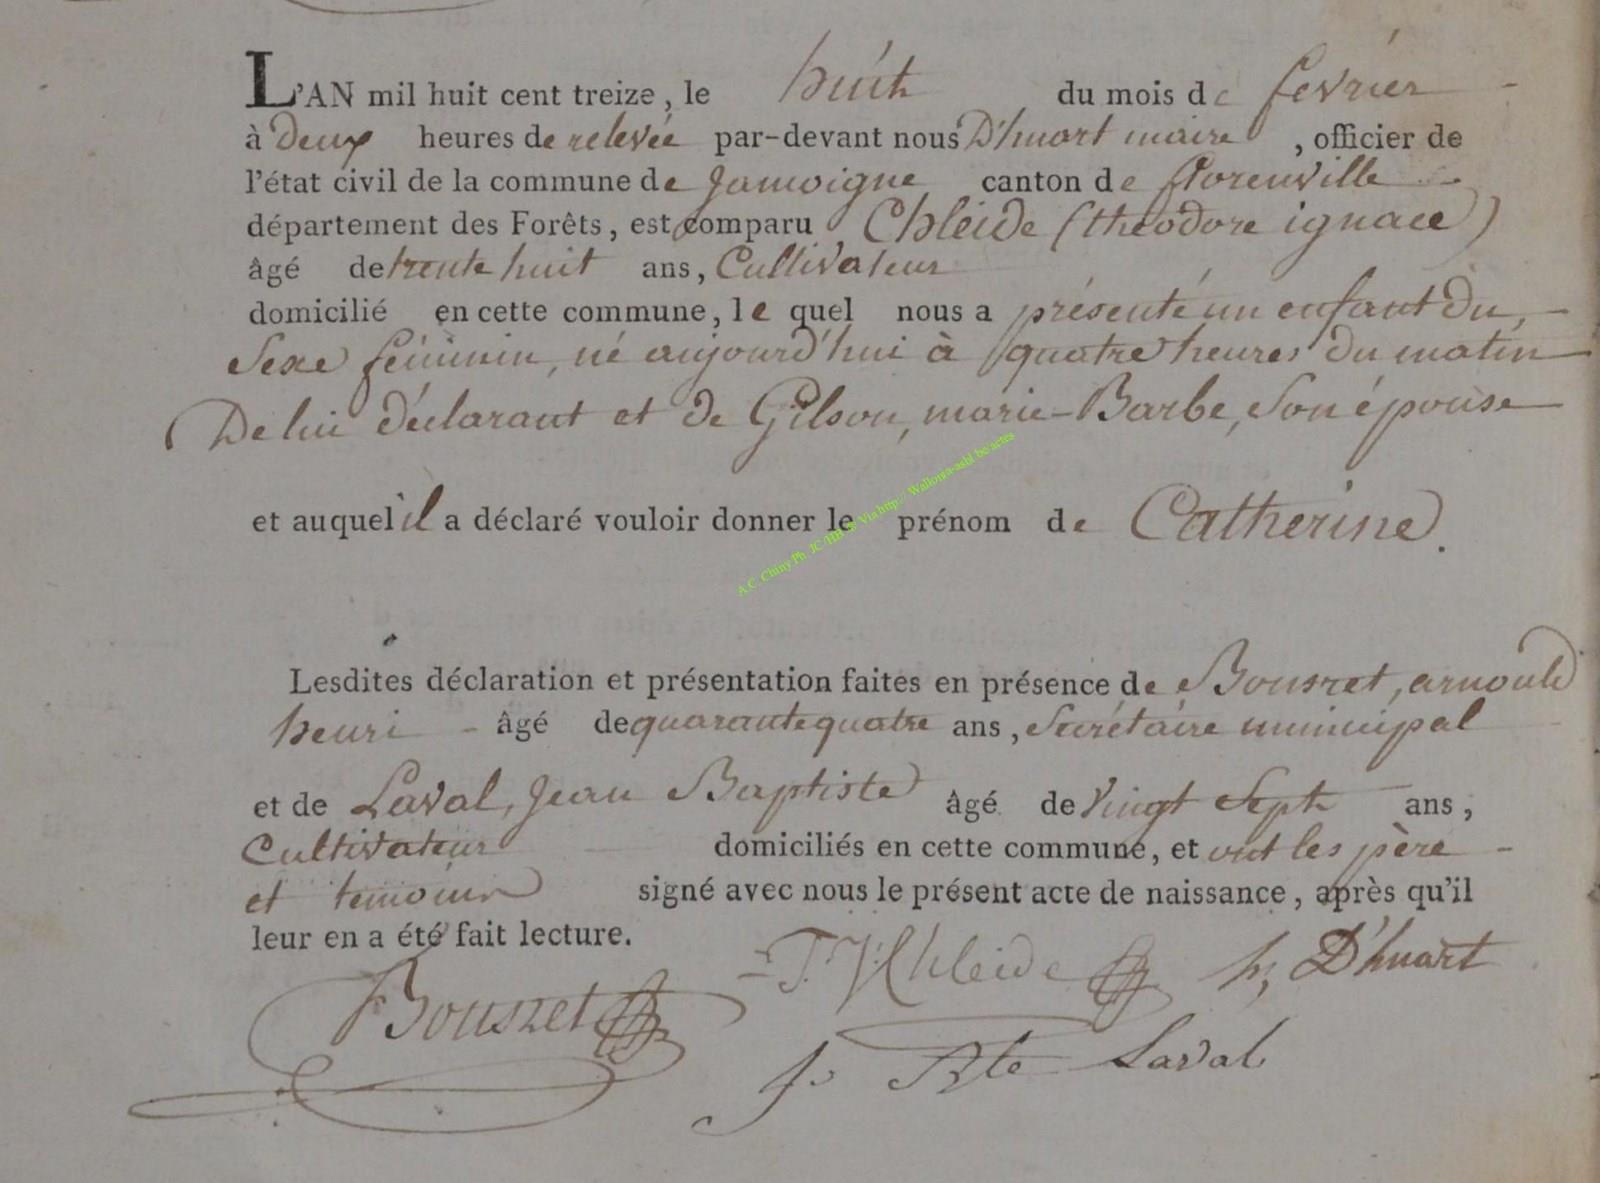 L'AN mil huit cent treize, le huit du mois de février
à deux heures de relevée par-devant nous D'huart maire, officier de
l'état civil de la commune de Jamoigne canton de florenville
département des Forêts, est comparu Chleide (théodore ignace)
âgé de trente huit ans, Cultivateur
domicilié en cette commune, le quel nous a présenté un enfant du
Sexe féminin, né aujourd'hui à quatre heures du matin
De lui déclarant et de Gilson, marie-Barbe, Son épouse
et auquel il a déclaré vouloir donner le prénom de Catherine.
A.C. Chiny Ph. JC/HB Via http:// Wallonia-asbl.be/actes
Lesdites déclaration et présentation faites en présence de Bousret, arnould
henri - âgé de quarante quatre ans, Secrétaire municipal
et de Laval, Jean Baptiste âgé de Vingt Sept ans,
Cultivateur domiciliés en cette commune, et ont les père -
et temoins signé avec nous le présent acte de naissance, après qu'il
leur en a été fait lecture.
T. J. Chleide h, D'huart
Bousret
J. Bte Laval